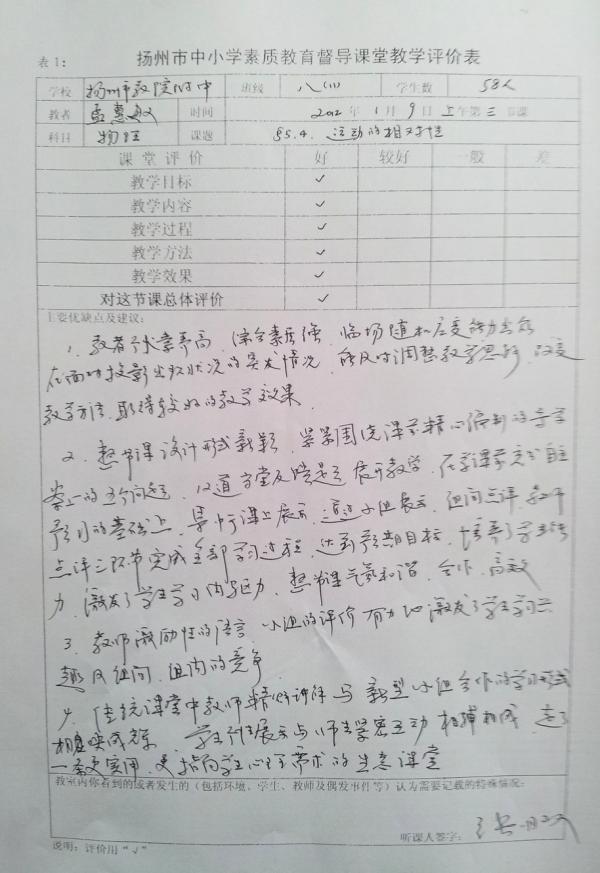 表1：
扬州市中小学素质教育督导课堂教学评价表
学校 扬州市教院附中 班级 八(1) 学生数 58人
教者 孟惠 时间 2012年1月9日上午第三节课
科目 物理 课题 §5.4. 运动的相对性
课堂评价 好 较好 一般 差
教学目标 ✓
教学内容 ✓
教学过程 ✓
教学方法 ✓
教学效果 ✓
对这节课总体评价 ✓
主要优缺点及建议：
1. 教者 素养高、综合素质强、临场随机应变能力
在面对投影出现状况的突发情况，能及时调整教学思路，改变
教学方法，取得较好的教学效果。
2. 整节课设计形式新颖，紧紧围绕课前精心编制的导学
案上的五个问题，12道 反馈 展开教学，在 课前充分自主
预习的基础上，集中于课上展示，通过小组展示、组间点评、教师
点评三环节完成全部学习过程，达到预期目标，培养了学生能
力，激发了学生学习内驱力，整节课气氛和谐、合作、高效
3. 教师激励性的语言，小组的评价有力地激发了学生学习兴
趣及组间、组内的竞争
4. 传统课堂中教师精心讲解与新型小组合作的学习形式
相映成 ，学生 展示与师生紧密互动相辅相成，走了
一条更实用、更指向学生心理需求的生态课堂
教室内你看到的或者发生的（包括环境、学生、教师及偶发事件等）认为需要记载的特殊情况：
听课人签字：
说明：评价用“✓”